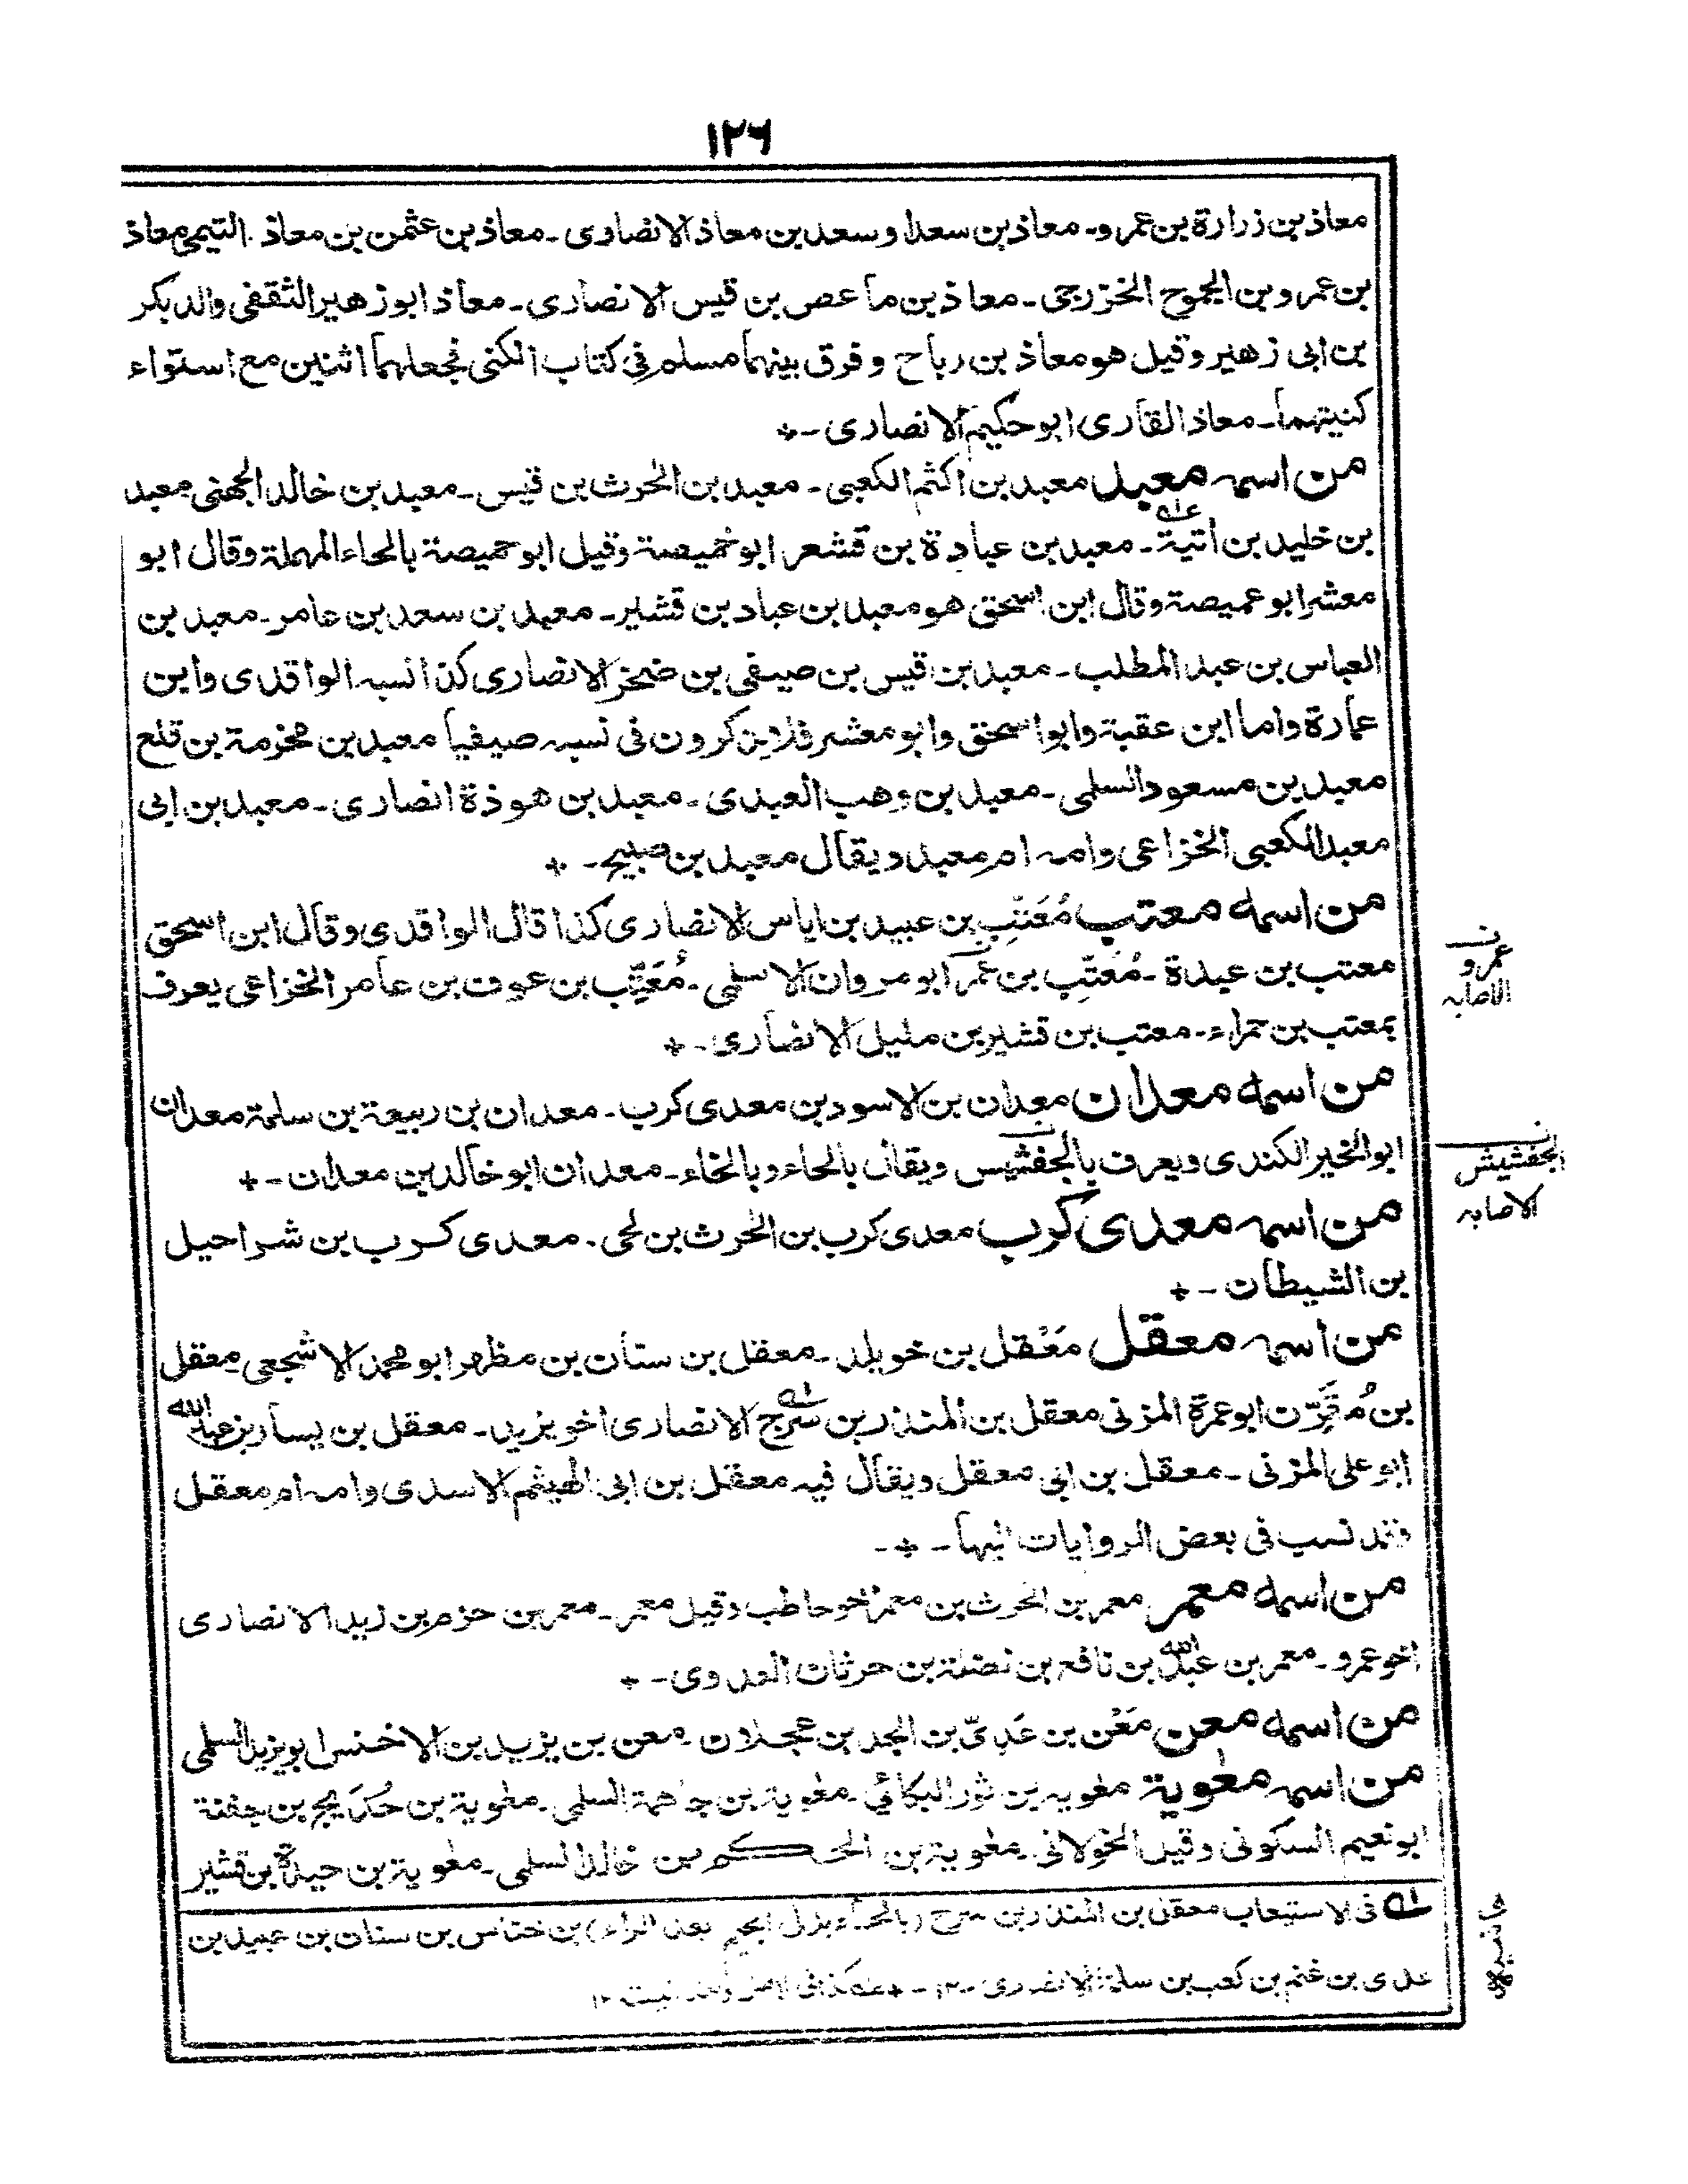 ١٢٦
معاذ بن زرارة بن عمرو۔ معاذ بن سعد او سعد بن معاذ الانصاری۔ معاذ بن عثمن بن معاذ التیمی معاذ
بن عمرو بن الجموح الخزرجی۔ معاذ بن ماعص بن قیس الانصاری۔ معاذ ابو زهیر الثقفی والد بکر
بن ابی زهیر وقیل هو معاذ بن رباح وفرق بینهما مسلم فی کتاب الکنی فجعلهما اثنین مع استواء
کنیتهما۔ معاذ القاری ابو حکیم الانصاری۔+
من اسمه معبد معبد بن اکثم الکعبی۔ معبد بن الحرث بن قیس۔ معبد بن خالد الجهنی معبد
بن خلید بن اثیة۔ معبد بن عبادة بن قشعر ابو خمیصة وقیل ابو حمیصة بالحاء المهملة وقال ابو
معشر ابو عمیصة وقال ابن اسحق هو معبد بن عباد بن قشیر۔ معبد بن سعد بن عامر۔ معبد بن
العباس بن عبد المطلب۔ معبد بن قیس بن صیفی بن ضخر الانصاری کذا نسبه الواقدی وابن
عمارة واما ابن عقبة وابو اسحق وابو معشر فلا یذکرون فی نسبه صیفیا معبد بن مخرمة بن قلع
معبد بن مسعود السلمی۔ معبد بن وهب العبدی۔ معبد بن هوذة انصاری۔ معبد بن ابی
معبد الکعبی الخزاعی وامه ام معبد ویقال معبد بن صبیح۔+
من اسمه معتب مُعَتِّب بن عبید بن ایاس الانصاری کذا قال الواقدی وقال ابن اسحق
معتب بن عبدة۔ مُعَتِّب بن عمر ابو مروان الاسلمی۔ مُعَتِّب بن عوف بن عامر الخزاعی یعرف
بمعتب بن حمراء۔ معتب بن قشیر بن ملیل الانصاری۔+
من اسمه معدان معدان بن الاسود بن معدی کرب۔ معدان بن ربیعة بن سلمة معدان
ابو الخیر الکندی ویعرف بالجفشیس ویقال بالحاء وبالخاء۔ معدان ابو خالد بن معدان۔+
من اسمه معدی کرب معدی کرب بن الحرث بن لحی۔ معدی کرب بن شراحیل
بن الشیطان۔+
من اسمه معقل مَعْقل بن خویلد۔ معقل بن سنان بن مظهر ابو محمد الاشجعی۔ معقل
بن مُقَرِّن ابو عمرة المزنی معقل بن المنذر بن سرج الانصاری اخو یزید۔ معقل بن یسار بن عبد الله
ابو علی المزنی۔ معقل بن ابی معقل ویقال فیه معقل بن ابی الهیثم الاسدی وامه ام معقل
فقد نسب فی بعض الروایات الیها۔+۔
من اسمه معمر معمر بن الحرث بن معمر اخو حاطب وقیل معمر۔ معمر بن حزم بن زید الانصاری
اخو عمرو۔ معمر بن عبد الله بن نافع بن نضلة بن حرثان العدوی۔+
من اسمه معن مَعْن بن عَدِیّ بن الجد بن عجلان۔ معن بن یزید بن الاخنس ابو یزید السلمی
من اسمه معٰویة معٰویه بن ثور البکائی۔ معٰویة بن جاهمة السلمی۔ معٰویة بن حُدَیج بن جفنة
ابو نعیم السکونی وقیل الخولانی۔ معٰویة بن الحکم بن خالد السلمی۔ معٰویة بن حیدة بن قشیر
فی الاستیعاب معقل بن المنذر بن سرح (بالحاء بدل الجیم بعد الراء) بن خناس بن سنان بن عبید بن
عدی بن غنم بن کعب بن سلمة الانصاری ١٢۔+
ن
عمرو
الاصابه
ن
الجفشیش
الاصابه